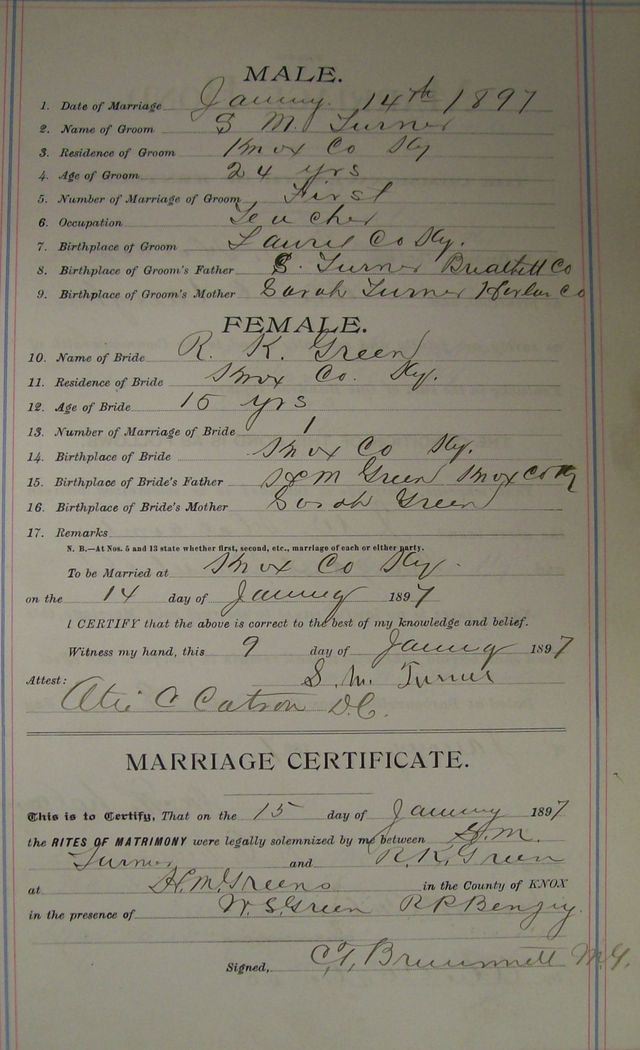 MALE.
1. Date of Marriage January 14th 1897
2. Name of Groom S M Turner
3. Residence of Groom Knox Co Ky
4. Age of Groom 24 yrs
5. Number of Marriage of Groom First
6. Occupation Teacher
7. Birthplace of Groom Laurel Co Ky.
8. Birthplace of Groom's Father S. Turner Breathitt Co
9. Birthplace of Groom's Mother Sarah Turner Harlan Co
FEMALE.
10. Name of Bride R. K. Green
11. Residence of Bride Knox Co. Ky.
12. Age of Bride 15 yrs
13. Number of Marriage of Bride 1
14. Birthplace of Bride Knox Co Ky.
15. Birthplace of Bride's Father M Green Knox Co Ky
16. Birthplace of Bride's Mother Sarah Green
17. Remarks
N. B.—At Nos. 5 and 13 state whether first, second, etc., marriage of each or either party.
To be Married at Knox Co Ky.
on the 14 day of January 1897
I CERTIFY that the above is correct to the best of my knowledge and belief.
Witness my hand, this 9 day of January 1897
S. M. Turner
Attest:
C Catron D.C.
MARRIAGE CERTIFICATE.
This is to Certify, That on the 15 day of January 1897
the RITES OF MATRIMONY were legally solemnized by me between S. M.
Turner and R. K. Green
at H. M. Greens in the County of KNOX
in the presence of W. S. Green R P
Signed, C. T. M. G.